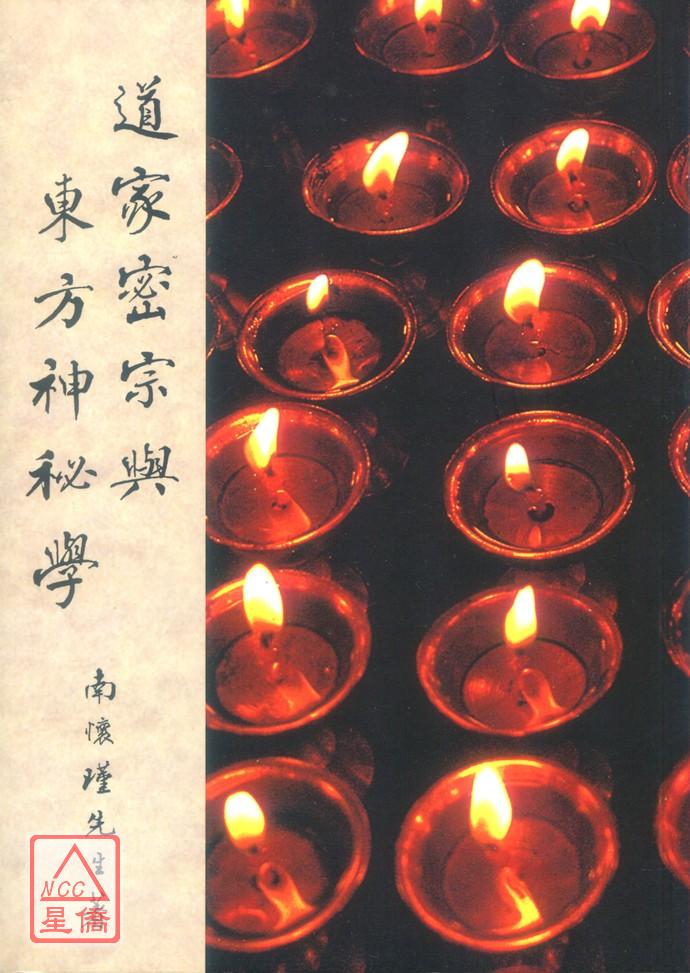 道家密宗與
東方神秘學
南懷瑾先生著
NCC
星僑